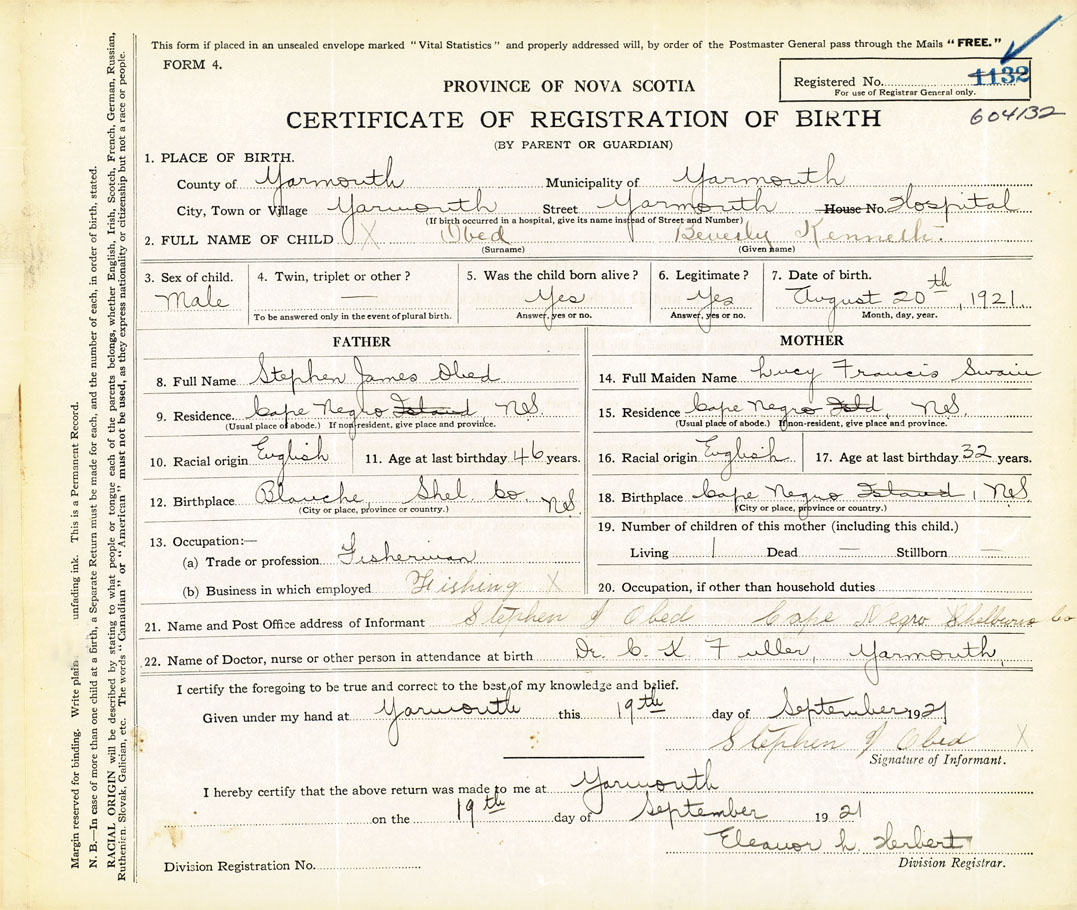 This form if placed in an unsealed envelope marked "Vital Statistics" and properly addressed will, by order of the Postmaster General pass through the Mails "FREE."
FORM 4.
Registered No. 1132
For use of Registrar General only.
604132
PROVINCE OF NOVA SCOTIA
CERTIFICATE OF REGISTRATION OF BIRTH
(BY PARENT OR GUARDIAN)
1. PLACE OF BIRTH.
County of Yarmouth Municipality of Yarmouth
City, Town or Village Yarmouth Street Yarmouth House No. Hospital
(If birth occurred in a hospital, give its name instead of Street and Number)
2. FULL NAME OF CHILD X Obed Beverly Kenneth.
(Surname) (Given name)
3. Sex of child. Male
4. Twin, triplet or other? —
To be answered only in the event of plural birth.
5. Was the child born alive? Yes
Answer, yes or no.
6. Legitimate? Yes
Answer, yes or no.
7. Date of birth. August 20th, 1921.
Month, day, year.
FATHER
8. Full Name Stephen James Obed
9. Residence Cape Negro Island, N.S.
(Usual place of abode.) If non-resident, give place and province.
10. Racial origin English 11. Age at last birthday 46 years.
12. Birthplace Blanche, Shel. Co N.S.
(City or place, province or country.)
13. Occupation:—
(a) Trade or profession Fisherman
(b) Business in which employed Fishing X
MOTHER
14. Full Maiden Name Lucy Francis Swain
15. Residence Cape Negro Isld, N.S.
(Usual place of abode.) If non-resident, give place and province.
16. Racial origin English 17. Age at last birthday 32 years.
18. Birthplace Cape Negro Island, N.S.
(City or place, province or country.)
19. Number of children of this mother (including this child.)
Living 1 Dead — Stillborn —
20. Occupation, if other than household duties
21. Name and Post Office address of Informant Stephen J Obed Cape Negro Shelburne Co
22. Name of Doctor, nurse or other person in attendance at birth Dr. C. K. Fuller, Yarmouth,
I certify the foregoing to be true and correct to the best of my knowledge and belief.
Given under my hand at Yarmouth this 19th day of September 1921
Stephen J Obed X
Signature of Informant.
I hereby certify that the above return was made to me at Yarmouth
on the 19th day of September 1921
Eleanor L. Herbert
Division Registrar.
Division Registration No.
Margin reserved for binding. Write plain unfading ink. This is a Permanent Record.
N. B.—In case of more than one child at a birth, a Separate Return must be made for each, and the number of each, in order of birth, stated.
RACIAL ORIGIN will be described by stating to what people or tongue each of the parents belongs, whether English, Irish, Scotch, French, German, Russian,
Ruthenian, Slovak, Galician, etc. The words "Canadian" or "American" must not be used, as they express nationality or citizenship but not a race or people.